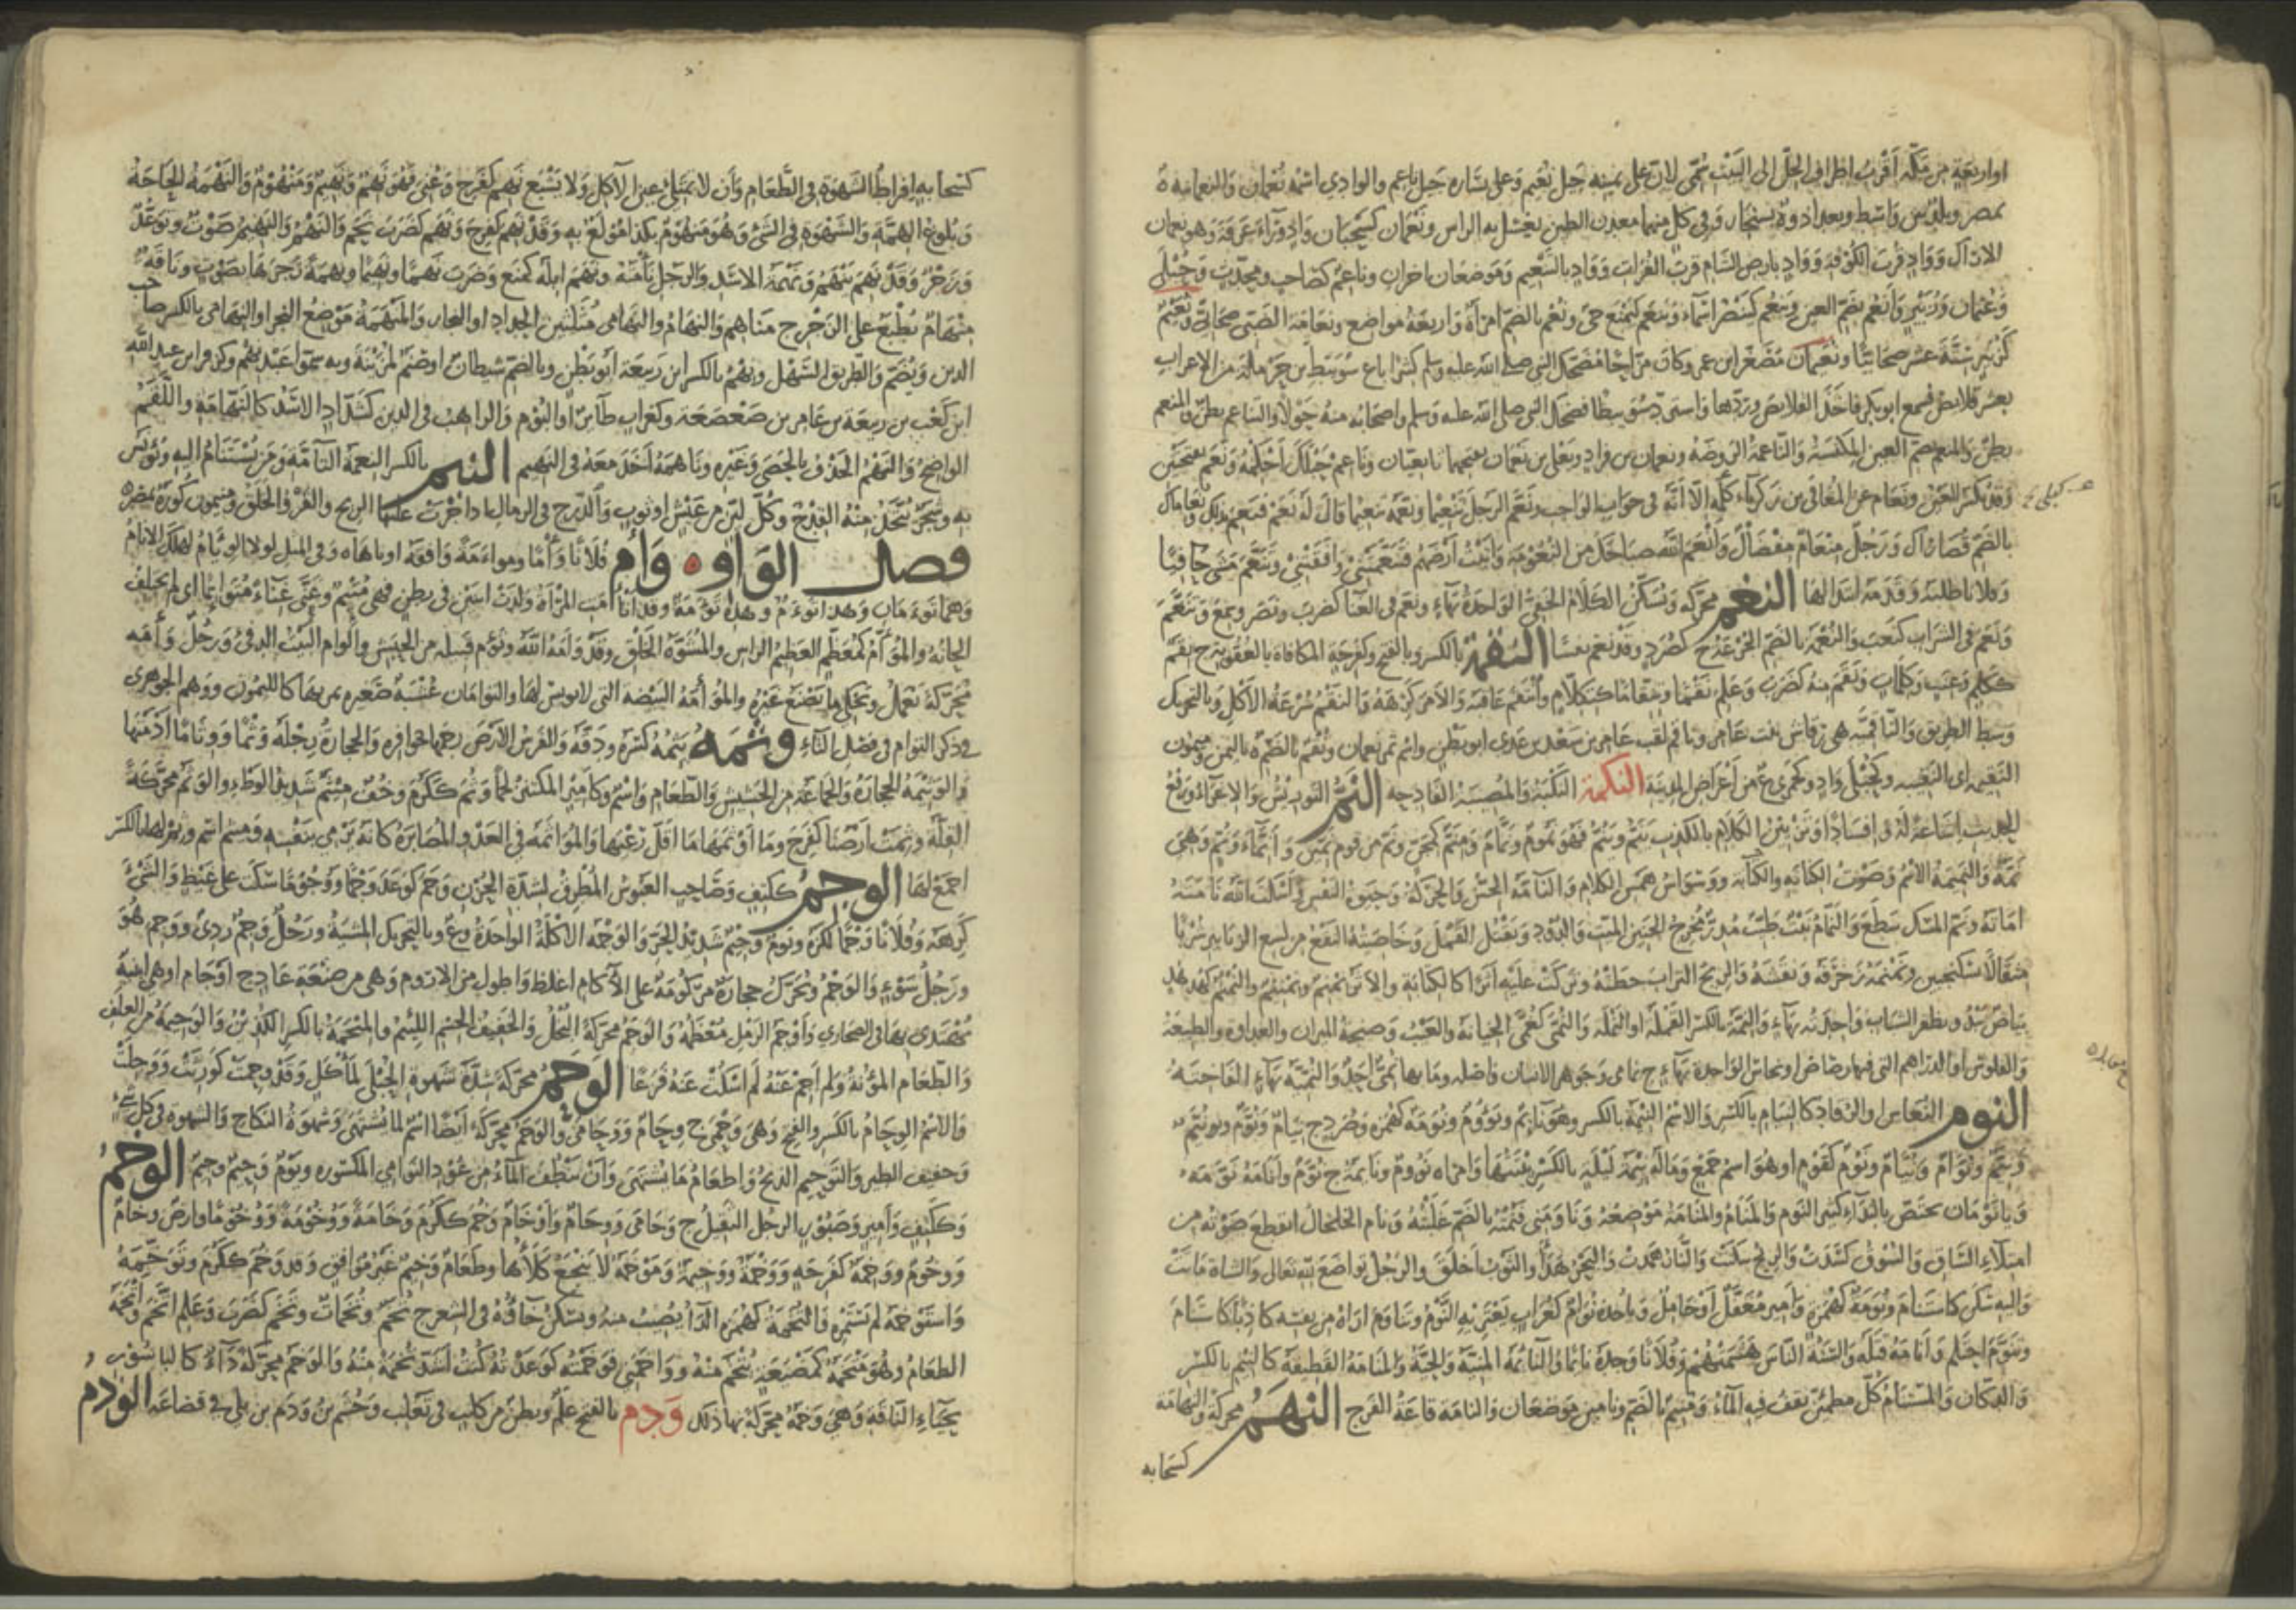 او اربعة من مكة اقرب اطراف الحل الى البيت سمى لان على يمينه جبل نعيم وعلى يساره جبل ناعم والوادي اسمه نعمان والنعمانية ة
بمصر وبلد بين واسط وبغداد وة بسنجار وفي كل منهما معدن الطين يغسل به الراس ونعمان كسحبان واد وراء عرفة وهو نعمان
الاراك وواد قرب الكوفة وواد بارض الشام قرب الفرات وواد بالتنعيم وموضعان اخران وناعم كصاحب ومحدث وحبلى
وعثمان وزبير وانعم بضم العين وينعم كينصر اسماء وينعم كيمنع حى ونعم بالضم امراة واربعة مواضع ونعامة الضبى صحابي ونعيم
كزبير ستة عشر صحابيا ونعيمان مصغرا ابن عمرو كان مزاحا يضحك النبي صلى الله عليه وسلم كثيرا باع سويبط بن حرملة من الاعراب
بعشر قلائص فسمع ابو بكر فاخذ القلائص وردها واسترد سويبطا فضحك النبي صلى الله عليه وسلم واصحابه منه حولا والتناعم بطن والمنعم
بطن والمنعم بضم العين المكنسة والناعمة الروضة ونعمان بن قراد ويعلى بن نعمان بفتحهما تابعيان وناعم حبلك احكمه ونعم بفتحتين
وقد تكسر العين ونعام عن المعافى بن زكرياء كلمة الا انه في جواب الواجب ونعم الرجل تنعيما قال له نعم فنعم بذلك ونعاماك
بالضم قصاراك ورجل منعام مفضال وانعم الله صباحك من النعومة واتيت ارضهم فتنعمتنى وافقتنى وتنعم مشى حافيا
وفلانا طلبه وقدمه ابتذالها النغم محركة وتسكن الكلام الخفي الواحدة بهاء ونغم في الغناء كضرب ونصر وسمع وتنغم
ونغم في الشراب كنغب والنغمة بالضم الجرعة ج كصرد وقد نغم نغما النقمة بالكسر وبالفتح وكفرحة المكافاة بالعقوبة ج نقم
ككلم وعنب وكلمات ونقم منه كضرب وعلم نقما وتنقاما ككلام وانتقم عاقبه والامر كرهه والنقم سرعة الاكل وبالتحريك
وسط الطريق والناقمية هي رقاش بنت عامر وناقم لقب عامر بن سعد بن عدي ابو بطن وتمر بعمان ونقم بالضم ة باليمن ميمون
النقيمة اى النقيبة وكجبلى واد وكجمزى ع من اعراض المدينة النكمة النكبة والمصيبة الفادحة النم التوريش والاغراء ورفع
الحديث اشاعة له وافسادا وتزيين الكلام بالكذب ينم وينم فهو نموم ونمام ومنم كمجن ونم من قوم نمين وانماء ونم وهى
نمة والنميمة الاسم وصوت الكتابة والكتابة ووسواس همس الكلام والنامة الحس والحركة وحيوة النفس واسكت الله نامته
اماته ونم المسك سطع والنمام نبت طيب مدر يخرج الجنين الميت والدود ويقتل القمل وخاصيته النفع من لسع الزنابير شربا
مثقالا بسكنجبين ونمنمه زخرفه ونقشه والريح التراب خطته وتركت عليه اثرا كالكتابة والاثر نمنم ونمنيم والنمنم كهدهد
بياض يبدو بظفر الشباب واحدته بهاء والنمة بالكسر القملة او النملة والنمى كقمى الخيانة والعيب وصنجة الميزان والعداوة والطبيعة
والفلوس او الدراهم التي فيها رصاص او نحاس الواحدة بهاء ج نمامى وجوهر الانسان واصله وما بها نمى احد والنمية بهاء الفاختة
النوم النعاس او الرقاد كالنيام بالكسر والاسم النيمة بالكسر وهو نائم ونؤوم ونومة كهمزة وصرد ج نيام ونوم ونيم
ونيم ونوام ونيام ونوم كقوم او هو اسم جمع وماله نيمة ليلة بالكسر بيتتها وامراة نؤوم ونائمة ج نوم وانامه نومه
ويا نومان يختص بالنداء كثير النوم والمنام والمنامة موضعه وناومني فنمته بالضم غلبته ونام الخلخال انقطع صوته من
امتلاء الساق والسوق كسدت والريح سكنت والنار همدت والبحر هدا والثوب اخلق والرجل تواضع لله تعالى والشاة ماتت
واليه سكن كاستنام ونومة كهمزة وامير مغفل او خامل وباخذه نوام كغراب يعتريه النوم وتناوم اراه من نفسه كاذبا كاستنام
وتنوم احتلم وانامه قتله والسنة الناس هشمتهم وفلانا وجده نائما والنائمة الميتة والحية والمنامة القطيفة كالنيم بالكسر
والدكان والمستنام كل مطمئن يقف فيه الماء ومنيم بالضم ونامين موضعان والنامة قاعة الفرج النهم محركة والنهامة
كسحابة
كسحابة افراط الشهوة في الطعام وان لا تمتلئ عين الاكل ولا تشبع نهم كفرح وعنى فهو نهم ونهيم ومنهوم والنهمة الحاجة
وبلوغ الهمة والشهوة في الشئ وهو منهوم بكذا مولع به وقد نهم كفرح ونهم كضرب نحم والنهم والنهيم صوت وتوعد
وزجر وقد نهم ينهم ونهمة الاسد والرجل نامته ونهم ابله كمنع وضرب نهما ونهيما ونهمة زجرها بصوت وناقة
منهام تطيع على الزجر ج مناهيم والنهام والنهامى مثلثين الحداد او النجار والمنهمة موضع النجر والنهامى بالكسر صاحب
الدير ويضم والطريق السهل ونهم بالكسر ابن ربيعة ابو بطن وبالضم شيطان او صنم لمزينة وبه سموا عبد نهم وكزفر ابن عبد الله
ابن كعب بن ربيعة بن عامر بن صعصعة وكغراب طائر او البوم والراهب في الدير كشداد الاسد كالنهامة واللقم
الواضح والنهم الخذف بالحصى وغيره وناهمه اخذ معه في النهيم النيم بالكسر النعمة التامة ومن يستنام اليه ويؤنس
به وشجر تتخذ منه القداح وكل لين من عيش او ثوب والدرج في الرمال اذا جرت عليها الريح والفرو الخلق وميمون كورة بمصر
فصل الواو ه وأم فلانا وأما ومواءمة وافقه او باهاه وفي المثل لولا الوئام لهلك الانام
وهما توءمان وهذا توءم وهذه توءمة وقد اتامت المراة ولدت اثنين في بطن فهي متئم وغنى غناء متوائما اى لم يختلف
الحانه والموام كمعظم العظيم الراس والمشوه الخلق وقد وامه الله ويوم قبيلة من الحبش والوام البيت الدفئ ورجل وأمه
محركة يعمل ويحكي ما يصنع غيره والموأمة البيضة التي لا تونس لها والتوامان عشبة صغيرة ثمرتها كالكمون ووهم الجوهري
في ذكر التوام في فصل التاء وثمه يثمه كسره ودقه والفرس الارض رجمها بحوافره والحجارة رجله وثما ووثاما ادمتها
والوثيمة الحجارة والجماعة من الحشيش والطعام واسم وكامير المكتنز لحما وثم ككرم وخف ميثم شديد الوطء والوثم محركة
القلة ووثمت ارضنا كفرح وما اوثمها ما اقل رعيها والمواثمة في العدو المضابرة كانه يرمي بنفسه وميثم اسم وثم لها بالكسر
اجمع لها الوجم ككتف وصاحب العبوس المطرق لشدة الحزن وجم كوعد وجما ووجوما سكت على غيظ والشئ
كرهه وفلانا وجما لكزه ويوم وجيم شديد الحر والوجمة الاكلة الواحدة وع وبالتحريك المسبة ورجل وجم ردئ ووجم هو
ورجل سوء والوجم ويحرك حجارة مركومة على الاكام اغلظ واطول من الاروم وهي من صنعة عاد ج اوجام او هي ابنية
يهتدى بها في الصحاري واوجم الرمل معظمه والوجم محركة البخل والخفيف الجسم اللئيم والميجمة بالكسر الكذين والوجيمة من العلف
والطعام المؤنة ولم اجم عنه لم اسكت عنه فزعا الوحم محركة شدة شهوة الحبلى لماكل وقد وحمت كورثت ووجلت
والاسم الوحام بالكسر والفتح وهي وحمى ج وحام ووحامى والوحم محركة ايضا اسم لما يشتهى وشهوة النكاح والشهوة في كل شئ
وحفيف الطير والتوحيم الذبح واطعام ما يشتهى وان ينطف الماء من عود النوامي المكسورة ويوم وحيم وحيم الوخم
وككتف وامير وصبور الرجل الثقيل ج وخامى ووخام واوخام وخم ككرم وخامة ووخومة ووخوما وارض وخام
ووخوم ووخمة كفرحة ووخمة ووخيمة وموخمة لا ينجع كلاها وطعام وخيم غير موافق وقد وخم ككرم وتوخمه
واستوخمه لم يستمره والتخمة كهمزة الداء يصيب منه وتسكن خاؤه في الشعر ج تخم وتخمات وتخم كضرب وعلم اتخم واتخمه
الطعام وهو متخمة كمصنعة يتخم منه وواخمني فوخمته كوعدته كنت اشد تخمة منه والوخم محركة داء كالباسور
بحياء الناقة وهي وخمة محركة بها ذلك ودم بالفتح علم وبطن من كلب في تغلب وخثم بن ودم بن بلي في قضاعة الوذم